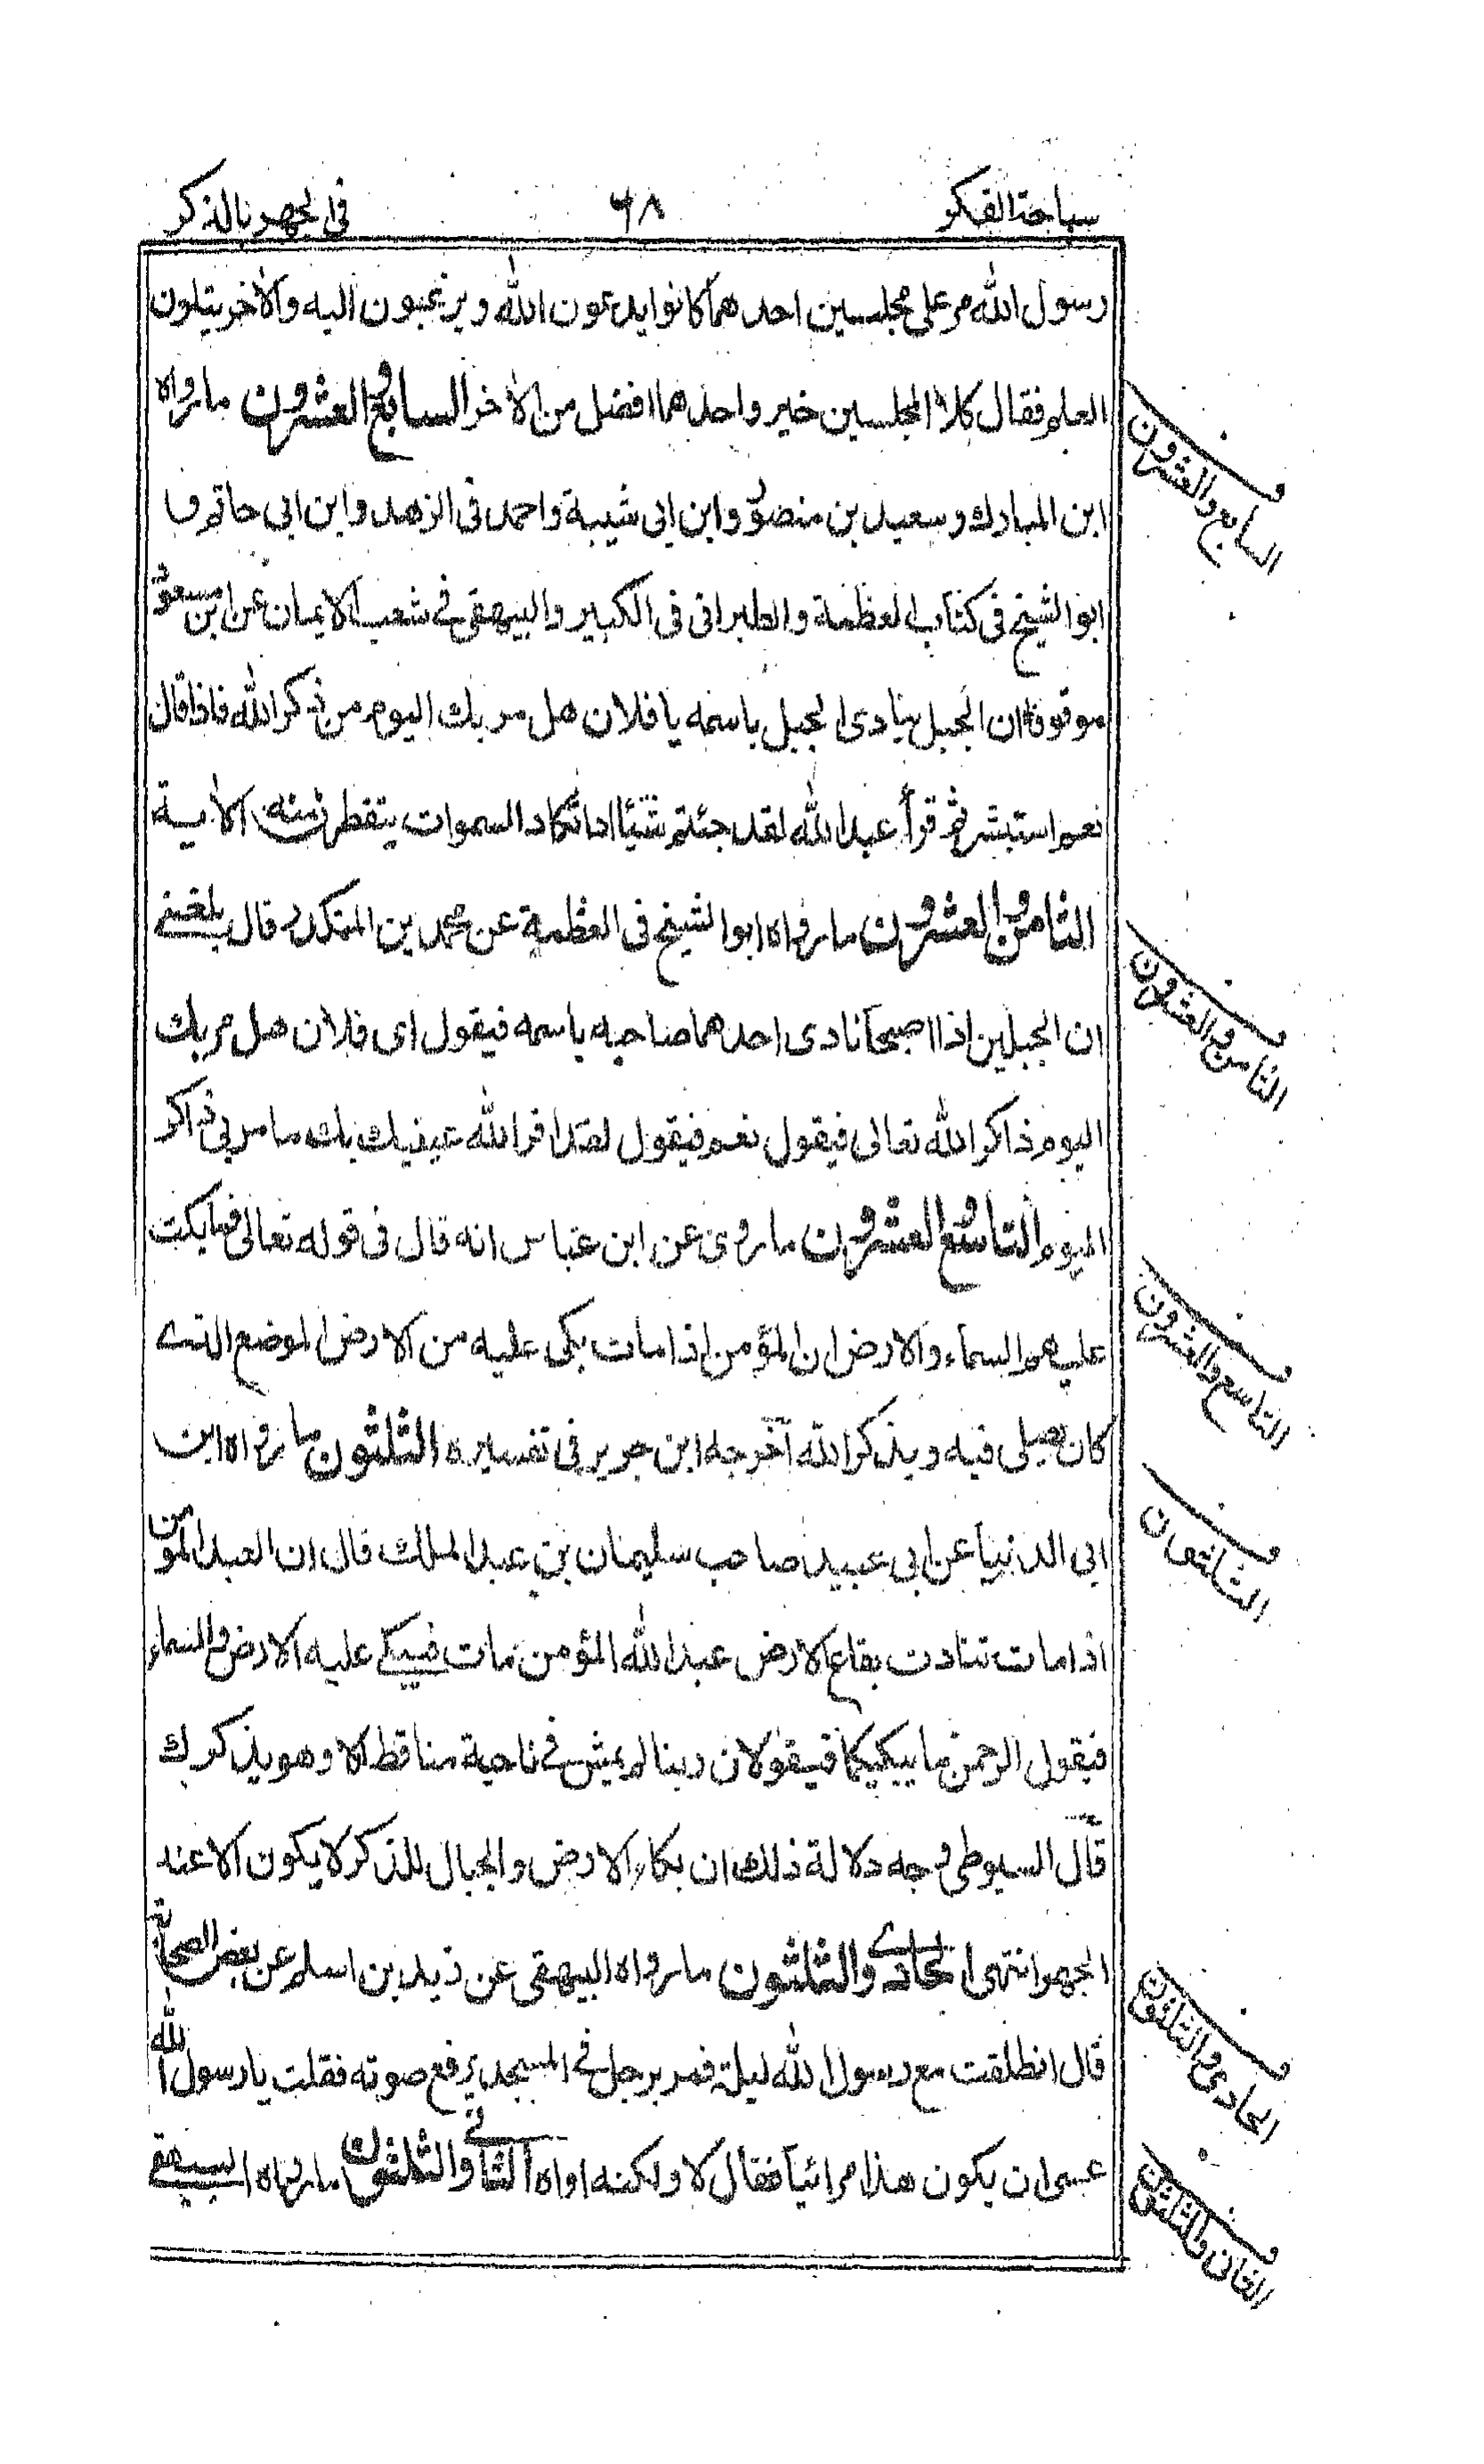 سباحة الفكر ٦٨ في الجهر بالذكر
رسول الله مر على مجلسين احدهما كانوا يدعون الله ويرغبون اليه والآخر يتلون
العلم فقال كلا المجلسين خير واحدهما افضل من الآخر السابع والعشرون ما رواه
ابن المبارك وسعيد بن منصور وابن ابى شيبة واحمد فى الزهد وابن ابى حاتم و
ابو الشيخ فى كتاب العظمة والطبرانى فى الكبير والبيهقى فے شعب الايمان عن ابن مسعود
موقوفا ان الجبل ينادى الجبل باسمه يا فلان هل مر بك اليوم من ذكر الله فاذا قال
نعم استبشر ثم قرأ عبد الله لقد جئتم شئيا ادا تكاد السموات يتفطرن منه الآية
الثامن والعشرون ما رواه ابو الشيخ فى العظمة عن محمد بن المنكدر قال بلغنے
ان الجبلين اذا اصبحا نادى احدهما صاحبه باسمه فيقول اى فلان هل مر بك
اليوم ذاكر الله تعالى فيقول نعم فيقول لقد اقر الله عينيك بك ما مر بى ذاكر
اليوم التاسع والعشرون ما روى عن ابن عباس انه قال فى قوله تعالى فما بكت
عليهم السماء والارض ان المؤمن اذا مات بكى عليه من الارض الموضع الذے
كان يصلى فيه ويذكر الله اخرجه ابن جرير فى تفسيره الثلثون ما رواه ابن
ابى الدنيا عن ابى عبيد صاحب سليمان بن عبد الملك قال ان العبد المؤمن
اذا مات تنادت بقاع الارض عبد الله المؤمن مات فيبكے عليه الارض والسماء
فيقول الرحمن ما يبكيكما فيقولان ربنا لم يمش فے ناحية منا قط الا وهو يذكرك
قال السيوطى وجه دلالة ذلك ان بكاء الارض والجبال للذكر لا يكون الا عند
الجهر انتهى الحادى والثلثون ما رواه البيهقى عن زيد بن اسلم عن بعض الصحابة
قال انطلقت مع رسول الله ليلة فمر برجل فے المسجد يرفع صوته فقلت يا رسول الله
عسى ان يكون هذا مرائيا فقال لا ولكنه اواه الثانے والثلثون ما رواه البيهقے
السابع والعشرون
الثامن والعشرون
التاسع والعشرون
الثلثون
الحادى والثلثون
الثانى والثلثون